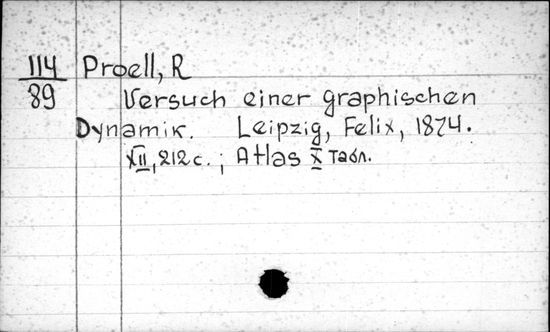 114 Proell, R
89 Versuch einer graphischen
Dynamik. Leipzig, Felix, 1874.
XII, 212 с.; Atlas X Табл.